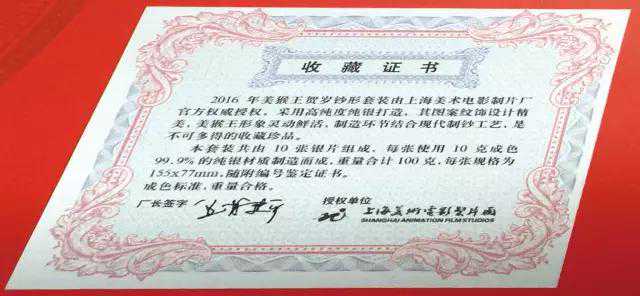 收藏证书
2016 年美猴王贺岁钞形套装由上海美术电影制片厂
官方权威授权。采用高纯度纯银打造，其图案纹饰设计精
美，美猴王形象灵动鲜活，制造环节结合现代制钞工艺，是
不可多得的收藏珍品。
本套装共由 10 张银片组成，每张使用 10 克成色
99.9%的纯银材质制造而成，重量合计 100 克，每张规格为
155x77mm，随附编号鉴定证书。
成色标准，重量合格。
厂长签字 授权单位
上海美术电影製片厰
SHANGHAI ANIMATION FILM STUDIOS